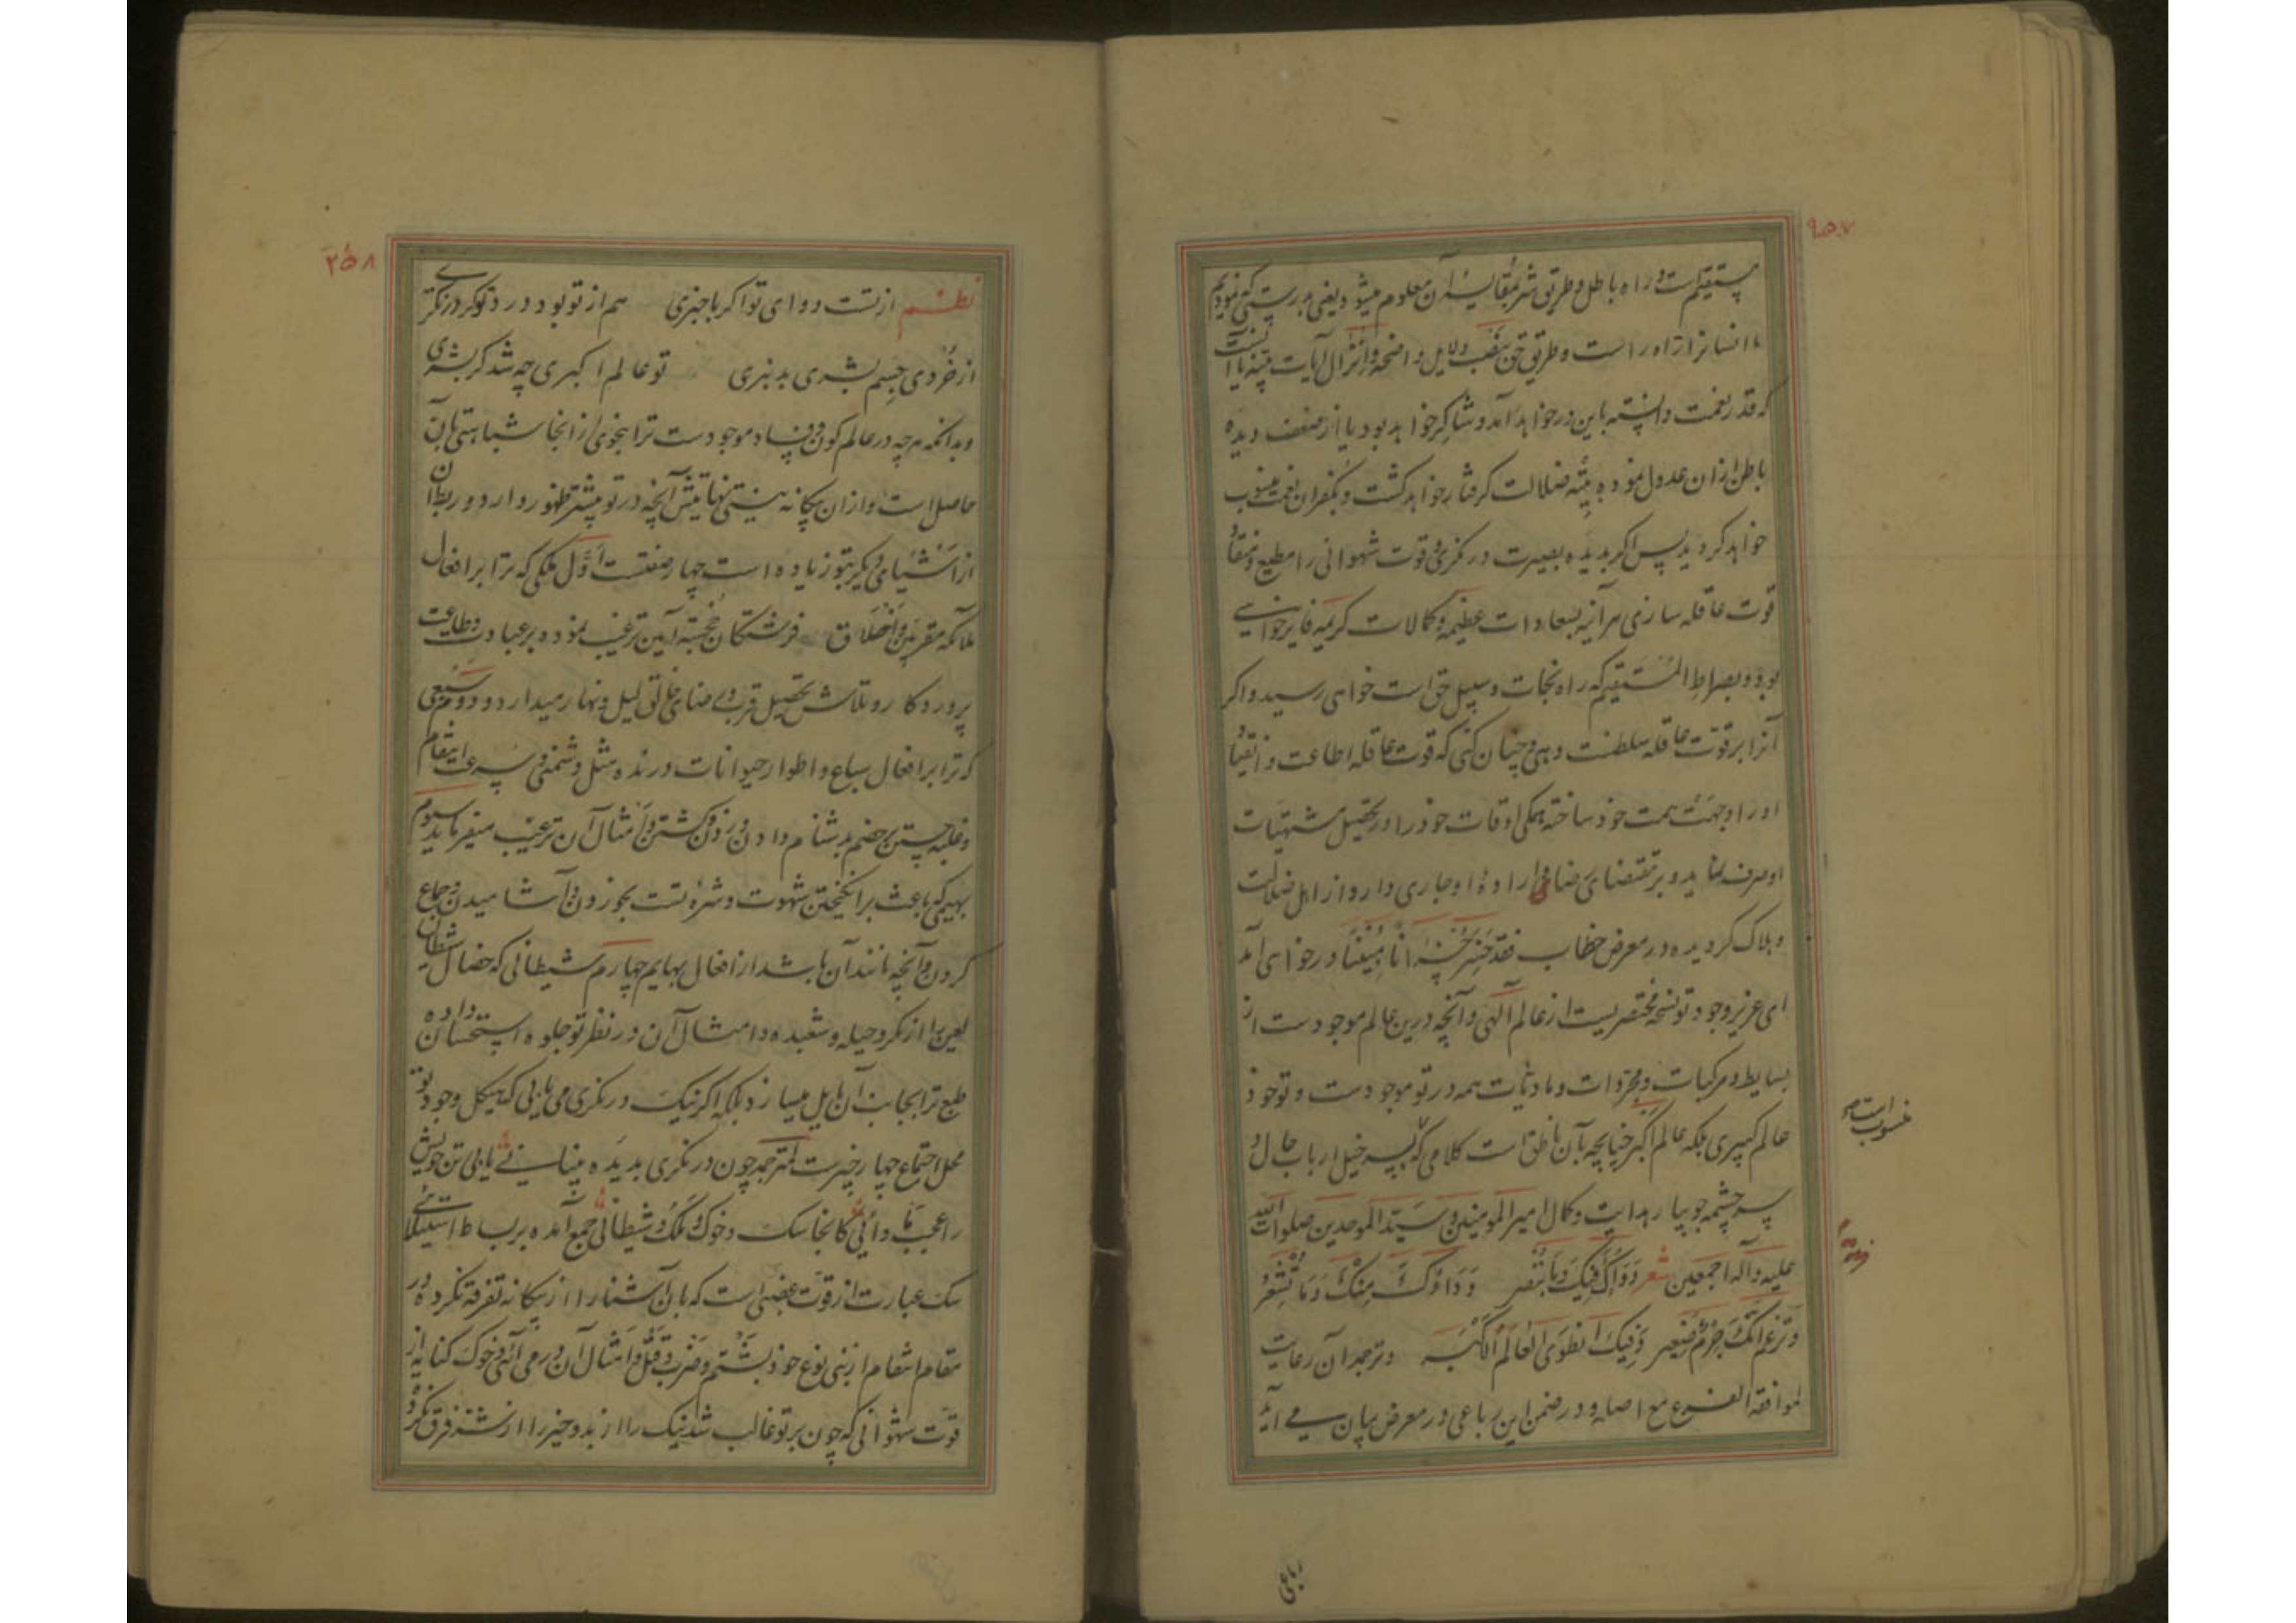 ۹۵۷
مستقیمست و راه باطل و طریق شر بمقایسهٔ آن معلوم میشود یعنی بدرستیکه نمودیم
ما انسانرا راه راست و طریق حق بنصب دلایل واضحه و انزال آیات بینه یا آنست
که قدر نعمت دانسته باین در خواهد آمد و شاکر خواهد بود یا از ضعف دیده
باطن ازان عدول نموده به تیه ضلالت گرفتار خواهد گشت و بکفران نعمت منسوب
خواهد گردید پس اگر بدیده بصیرت درنگری و قوت شهوانی را مطیع و منقاد
قوت عاقله سازی هرآینه بسعادات عظیمه و کمالات کریمه فایز خواهی
بود و بصراط المستقیم که راه نجات و سبیل حق است خواهی رسید و اگر
آنرا بر قوت عاقله سلطنت دهی و چنان کنی که قوت عاقله اطاعت و انقیاد
او را وجهت همت خود ساخته همگی اوقات خود را در تحصیل مشتهیات
او صرف نماید و بر مقتضای رضا و ارادهٔ او جاری دارد از اهل ضلالت
و هلاک گردیده در معرض خطاب فقد خسر خسرانا مبینا در خواهی آمد
ای عزیز وجود تو نسخهٔ مختصریست از عالم آلهی و آنچه درین عالم موجودست از
بسایط و مرکبات و مجردات و مادیات همه در تو موجودست و تو خود
عالم کبیری بلکه عالم اکبر چنانچه بآن ناطق است کلامی که بسر خیل ارباب حال و
سر چشمه جویبار هدایت و کمال امیر المومنین و سید الموحدین صلوات الله
علیه و آله اجمعین شعر دَوَاؤُکَ فِیکَ وَمَا تُبْصِر وَدَاؤُکَ مِنْکَ وَمَا تَشْعُرُ
وَتَزْعَمُ أَنَّکَ جِرْمٌ صَغِیر وَفِیکَ انْطَوَی العَالَمُ الأکْبَر و ترجمه آن رعایت
لموافقة الفرع مع اصله در ضمن این رباعی در معرض بیان می آید
منسوب است
رباعی
۲۵۸
نظم از تست دوای تو اگر باخبری هم از تو بود درد تو گر درنگری
از خردی جسم بشری بد نبری تو عالم اکبری چه شد گر بشری
و بدانکه هر چه در عالم کون و فساد موجودست ترا بنحوی از انحا شباهتی بآن
حاصل است و ازان بیگانه نیستی نهایتش آنچه در تو بیشتر ظهور دارد و ربط آن
از اشیای دیگر بتو زیاده است چهار صفتست اول ملکی که ترا بر افعال
ملائکه مقربین و اخلاق فرشتگان خجسته آیین ترغیب نموده بر عبادت و طاعت
پروردگار و تلاش تحصیل قرب و رضای خالق لیل و نهار میدارد و دوم سبعی
که ترا بر افعال سباع و اطوار حیوانات درنده مثل دشمنی و سرعت انتقام
و غلبه جستن بر خصم بدشنام دادن و زدن و کشتن و امثال آن ترغیب میفرماید سیوم
بهیمی که باعث برانگیختن شهوت و شره تست بخوردن و آشامیدن و جماع
کردن و آنچه مانند آن باشد از افعال بهایم چهارم شیطانی که خصال شیطان
لعین را از مکر و حیله و شعبده و امثال آن در نظر تو جلوه استحسان داده
طبع ترا بجانب آن مایل میسازد بلکه اگر نیک درنگری می یابی که هیکل وجود تو
محل اجتماع چهار چیزست لمترجمه چون درنگری بدیده بینائی یابی تن خویش
را عجب مأوائی کانجا سگ و خوک و ملک و شیطانی جمع آمده بر بساط استیلائی
سگ عبارت از قوت غضبی است که بآن آشنا را از بیگانه تفرقه نکرده در
مقام انتقام از بنی نوع خود بشتم و ضرب و قتل و امثال آن در می آئی و خوک کنایه از
قوت شهوانی که چون بر تو غالب شد نیک را از بد و خیر را از شر فرق نکرده